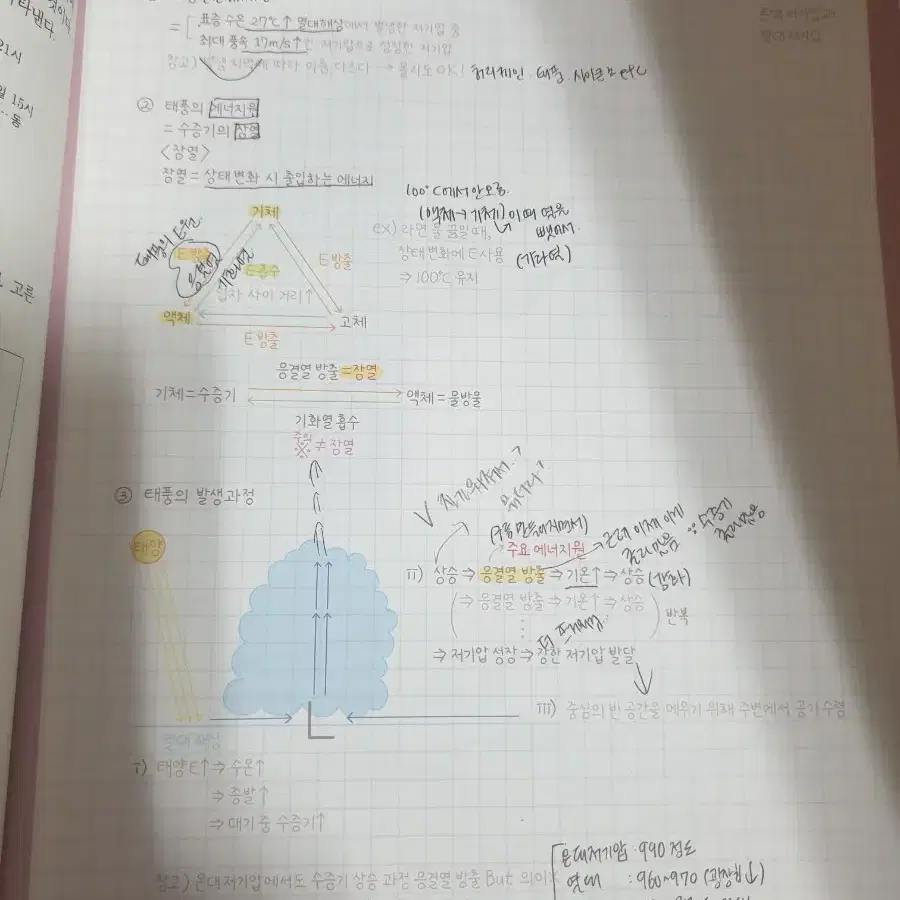 타낸다.
21시
15시
고른
= 표층 수온 27℃↑ 열대해상에서 발생한 저기압 중
최대 풍속 17m/s↑인 저기압으로 성장한 저기압
참고) 발생 지역에 따라 이름 다르다 → 몰라도 OK! 허리케인. 태풍. 사이클론 etc
열대 저기압
② 태풍의 에너지원
= 수증기의 잠열
<잠열>
잠열 = 상태변화 시 출입하는 에너지
100℃에서 안오름.
(액체→기체) 이때 열을 뺏어서.
ex) 라면 물 끓일 때,
상태변화에 E사용 (기화열)
⇒ 100℃ 유지
기체
태풍의 E원
E방출
응결열
기화열
E흡수
E방출
입자 사이 거리↑
액체
고체
E방출
응결열 방출 = 잠열
기체 = 수증기
액체 = 물방울
기화열 흡수
주의
※ ≠ 잠열
③ 태풍의 발생과정
태양
(구름 만들어지면서)
주요 에너지원 → 근데 이제 이게
∵ 수증기
ii) 상승 ⇒ 응결열 방출 ⇒ 기온↑ ⇒ 상승 (강화)
(⇒ 응결열 방출 ⇒ 기온↑ ⇒ 상승) 반복
⋮
⇒ 저기압 성장 → 강한 저기압 발달
iii) 중심의 빈 공간을 메우기 위해 주변에서 공기 수렴
L
열대 해상
i) 태양E↑ ⇒ 수온↑
⇒ 증발↑
⇒ 대기 중 수증기↑
참고) 온대저기압에서도 수증기 상승 과정 응결열 방출 But 의미X
온대저기압 : 990 정도
열대 : 960~970